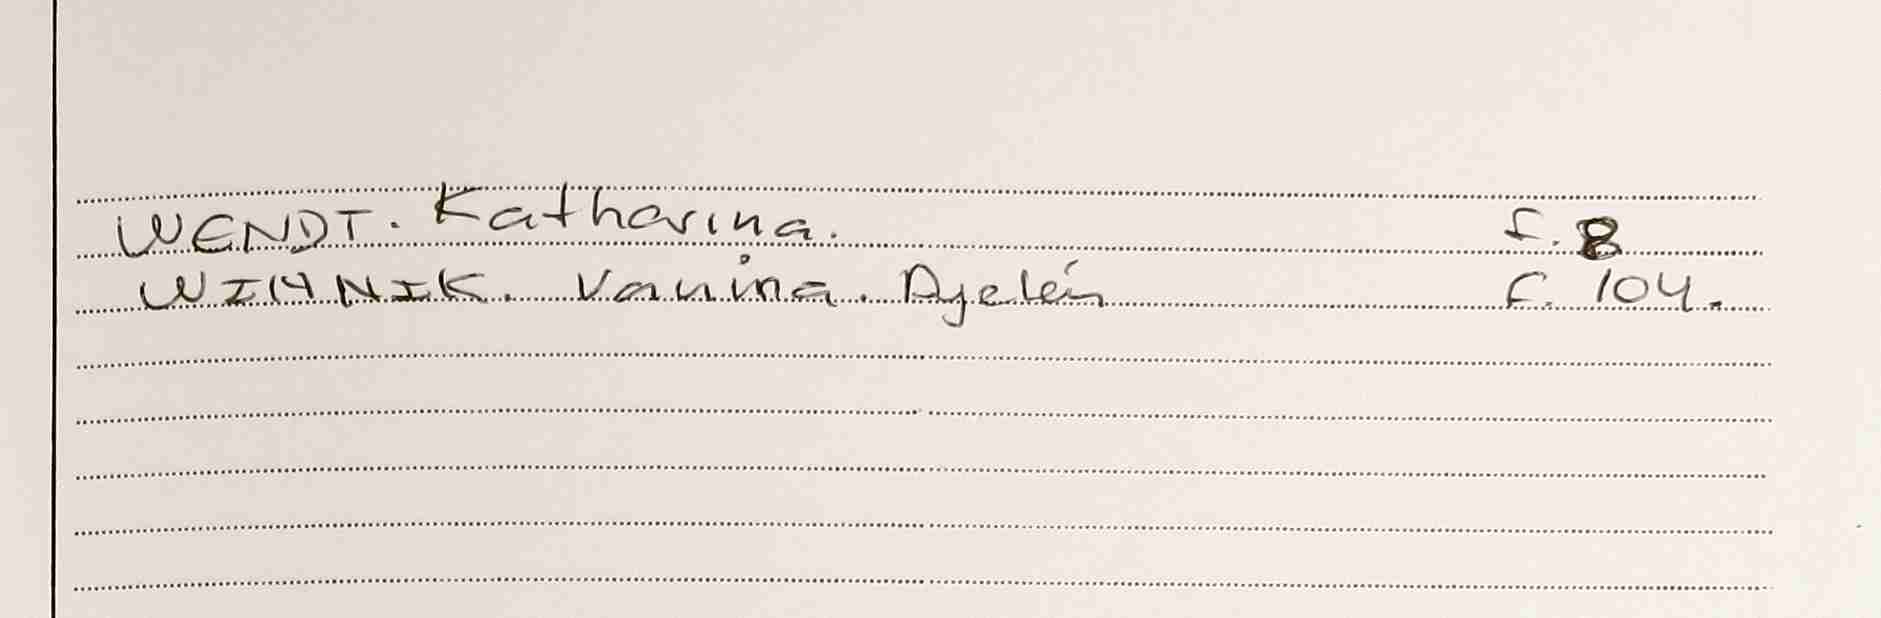 WENDT. Katharina. f. 8
WIHNIK. Vanina. Ayelén f. 104.